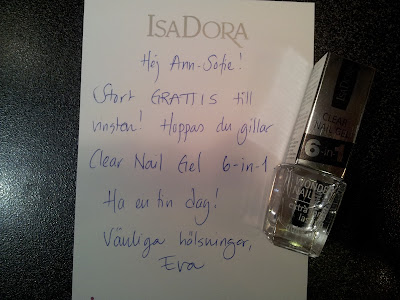 ISADORA
Hej Ann-Sofie!
Stort GRATTIS till
vinsten! Hoppas du gillar
Clear Nail Gel 6-in-1
Ha en fin dag!
Vänliga hälsningar,
Eva
CLEAR
NAIL GEL
6-in-1
WONDER
NAIL